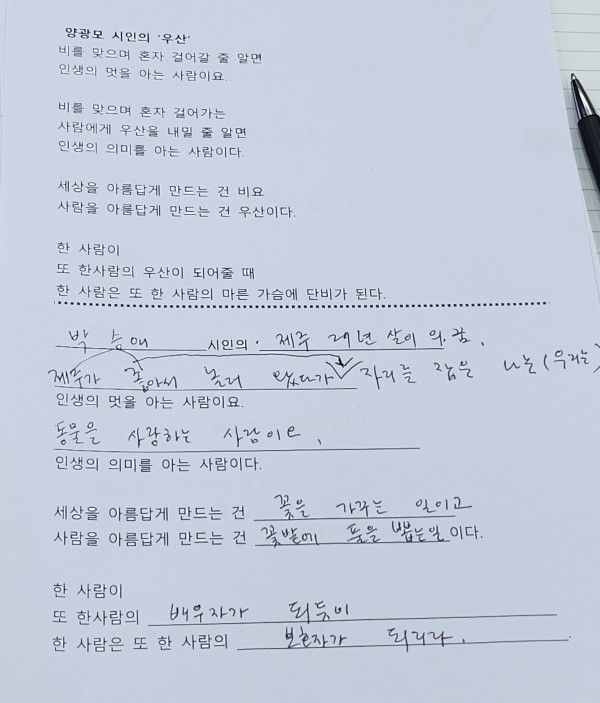 양광모 시인의 '우산'
비를 맞으며 혼자 걸어갈 줄 알면
인생의 멋을 아는 사람이요.
비를 맞으며 혼자 걸어가는
사람에게 우산을 내밀 줄 알면
인생의 의미를 아는 사람이다.
세상을 아름답게 만드는 건 비요
사람을 아름답게 만드는 건 우산이다.
한 사람이
또 한사람의 우산이 되어줄 때
한 사람은 또 한 사람의 마른 가슴에 단비가 된다.
박승애 시인의 · 제주 29년 살이 의 꿈.
제주가 좋아서 놀러 왔다가 자리를 잡은 나는 (우리는)
인생의 멋을 아는 사람이요.
동물을 사랑하는 사람이요.
인생의 의미를 아는 사람이다.
세상을 아름답게 만드는 건 꽃을 가꾸는 일이고
사람을 아름답게 만드는 건 꽃밭에 풀을 뽑는일이다.
한 사람이
또 한사람의 배우자가 되듯이
한 사람은 또 한 사람의 보호자가 되리라.